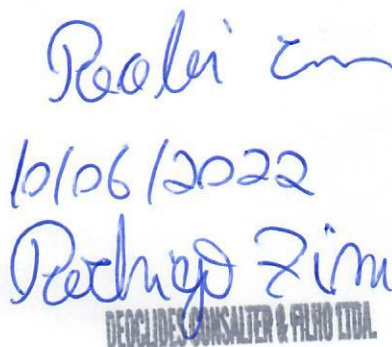 Recebi em
10/06/2022
Rodrigo Zim
DEOCLIDES CONSALTER & FILHO LTDA.